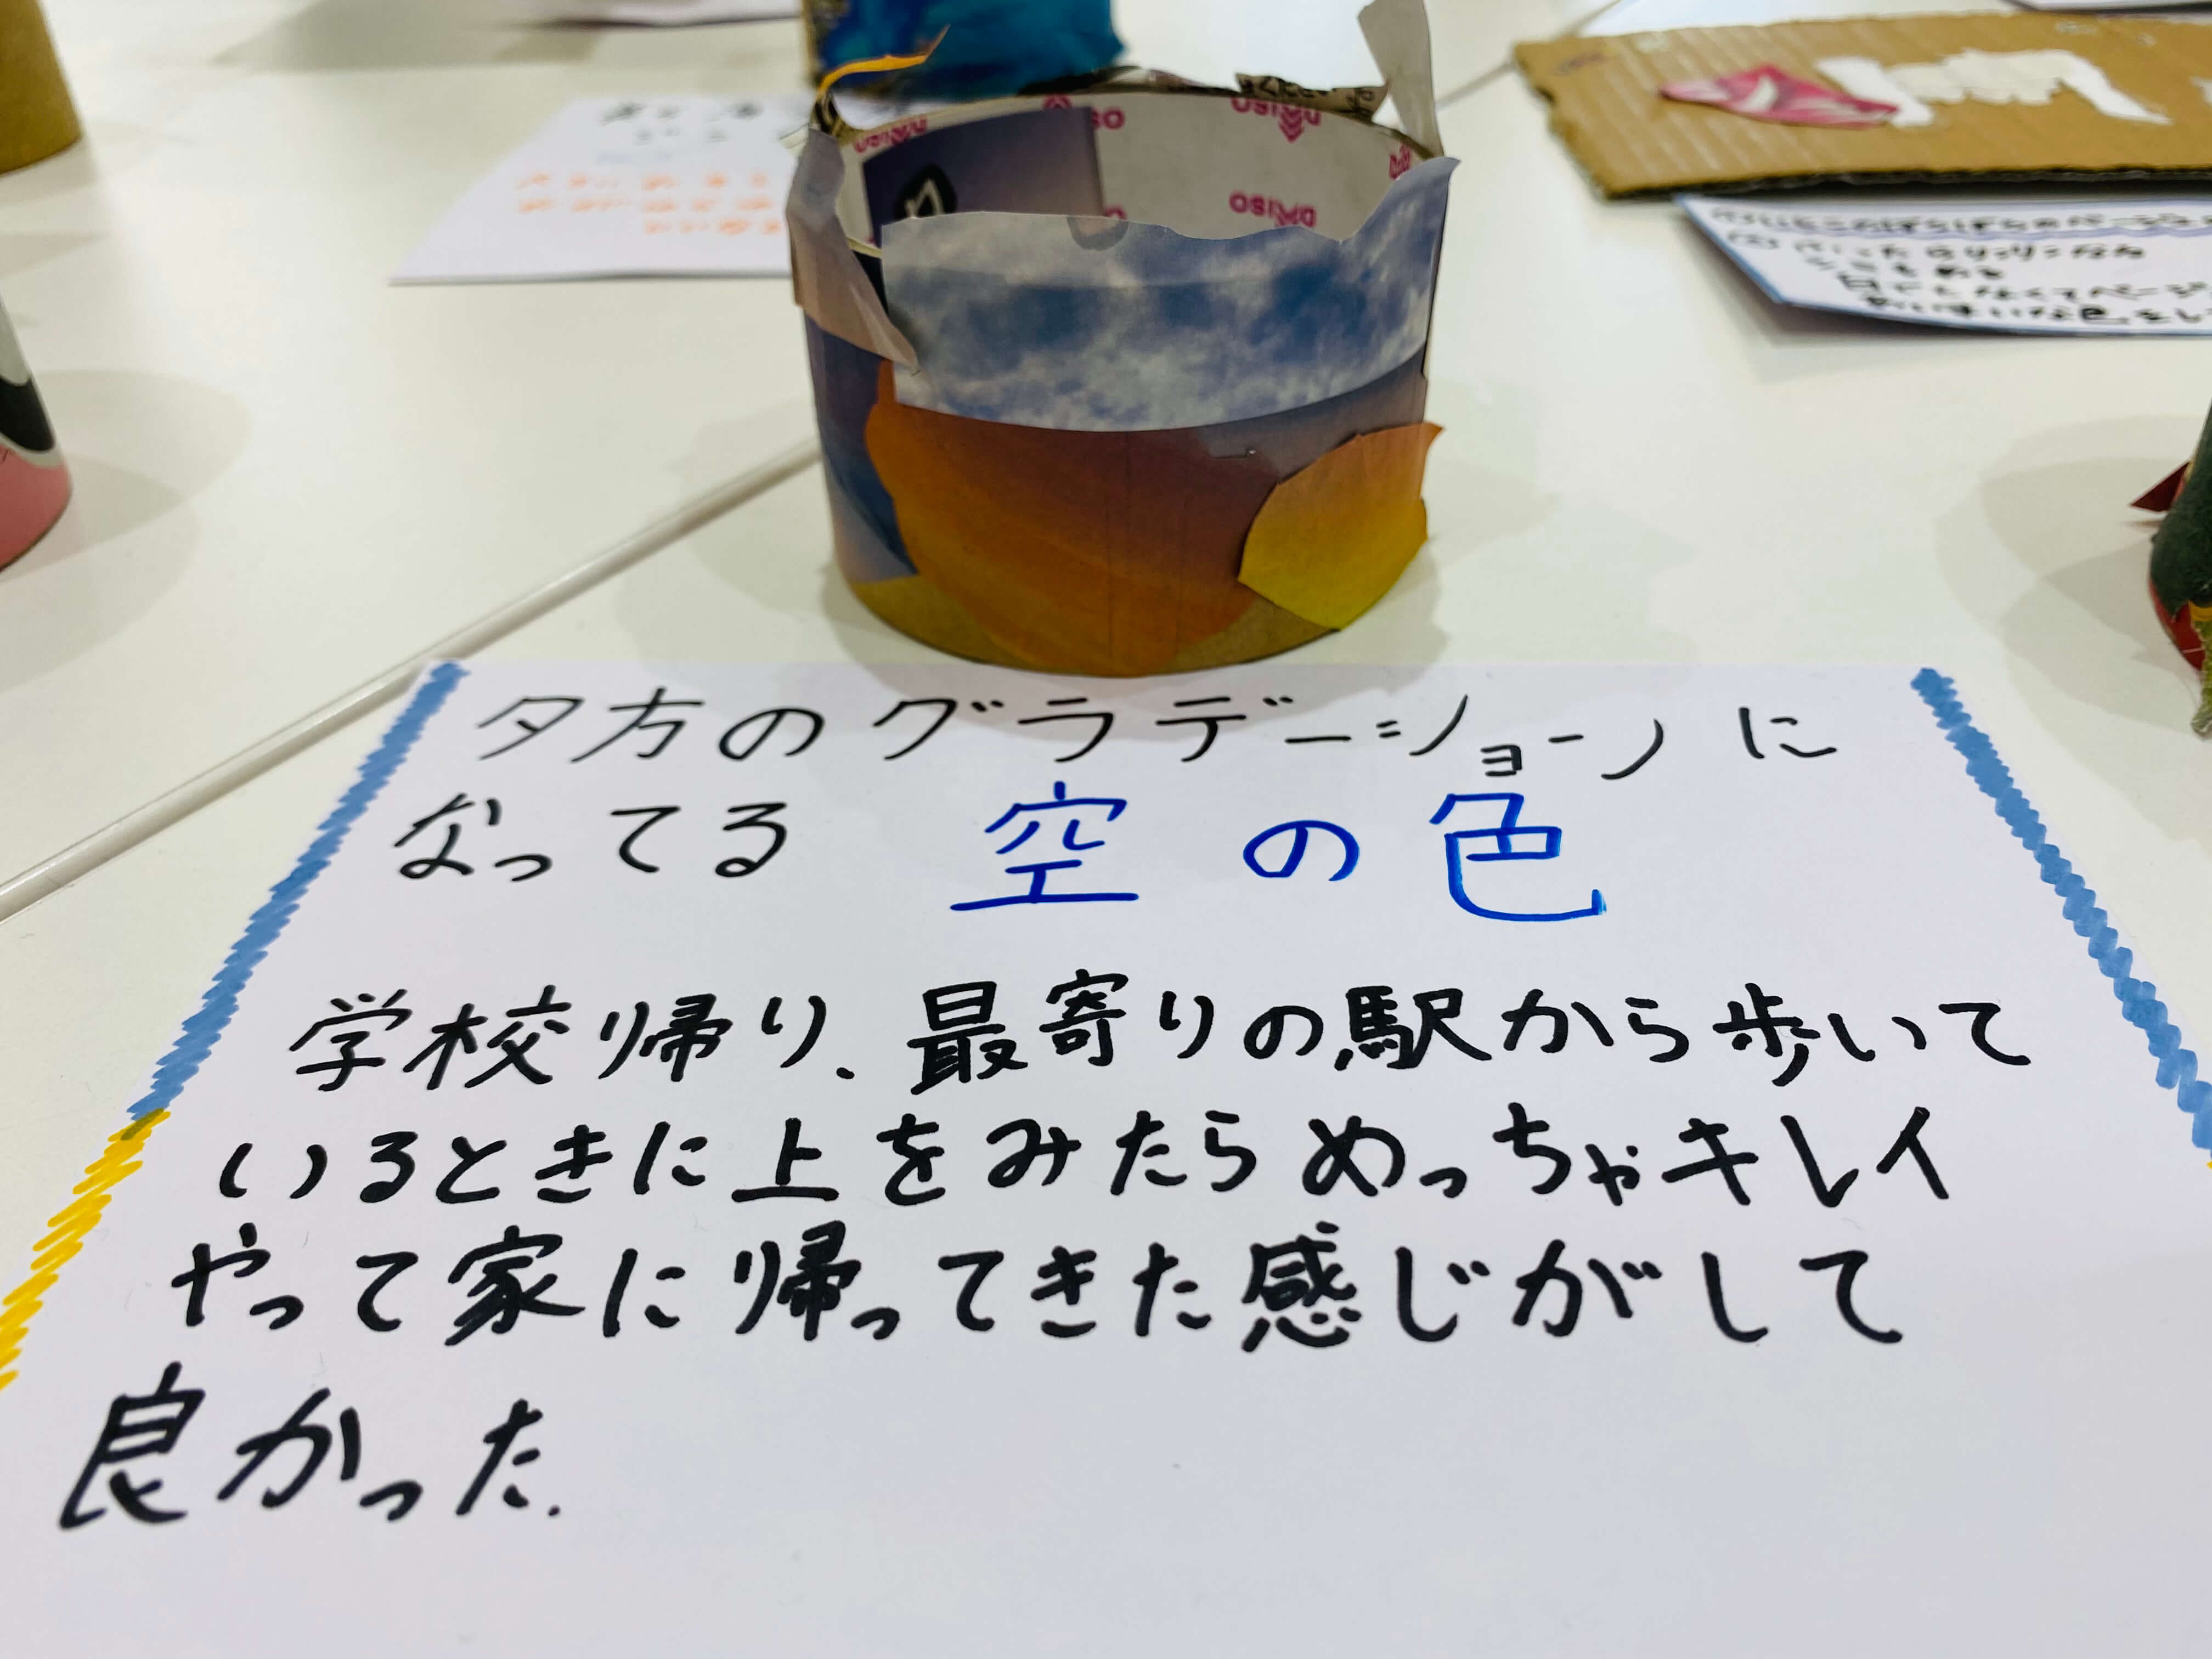 DAISO
DAISO
夕方のグラデーションに
なってる 空の色
学校帰り、最寄りの駅から歩いて
いるときに上をみたらめっちゃキレイ
やって家に帰ってきた感じがして
良かった.